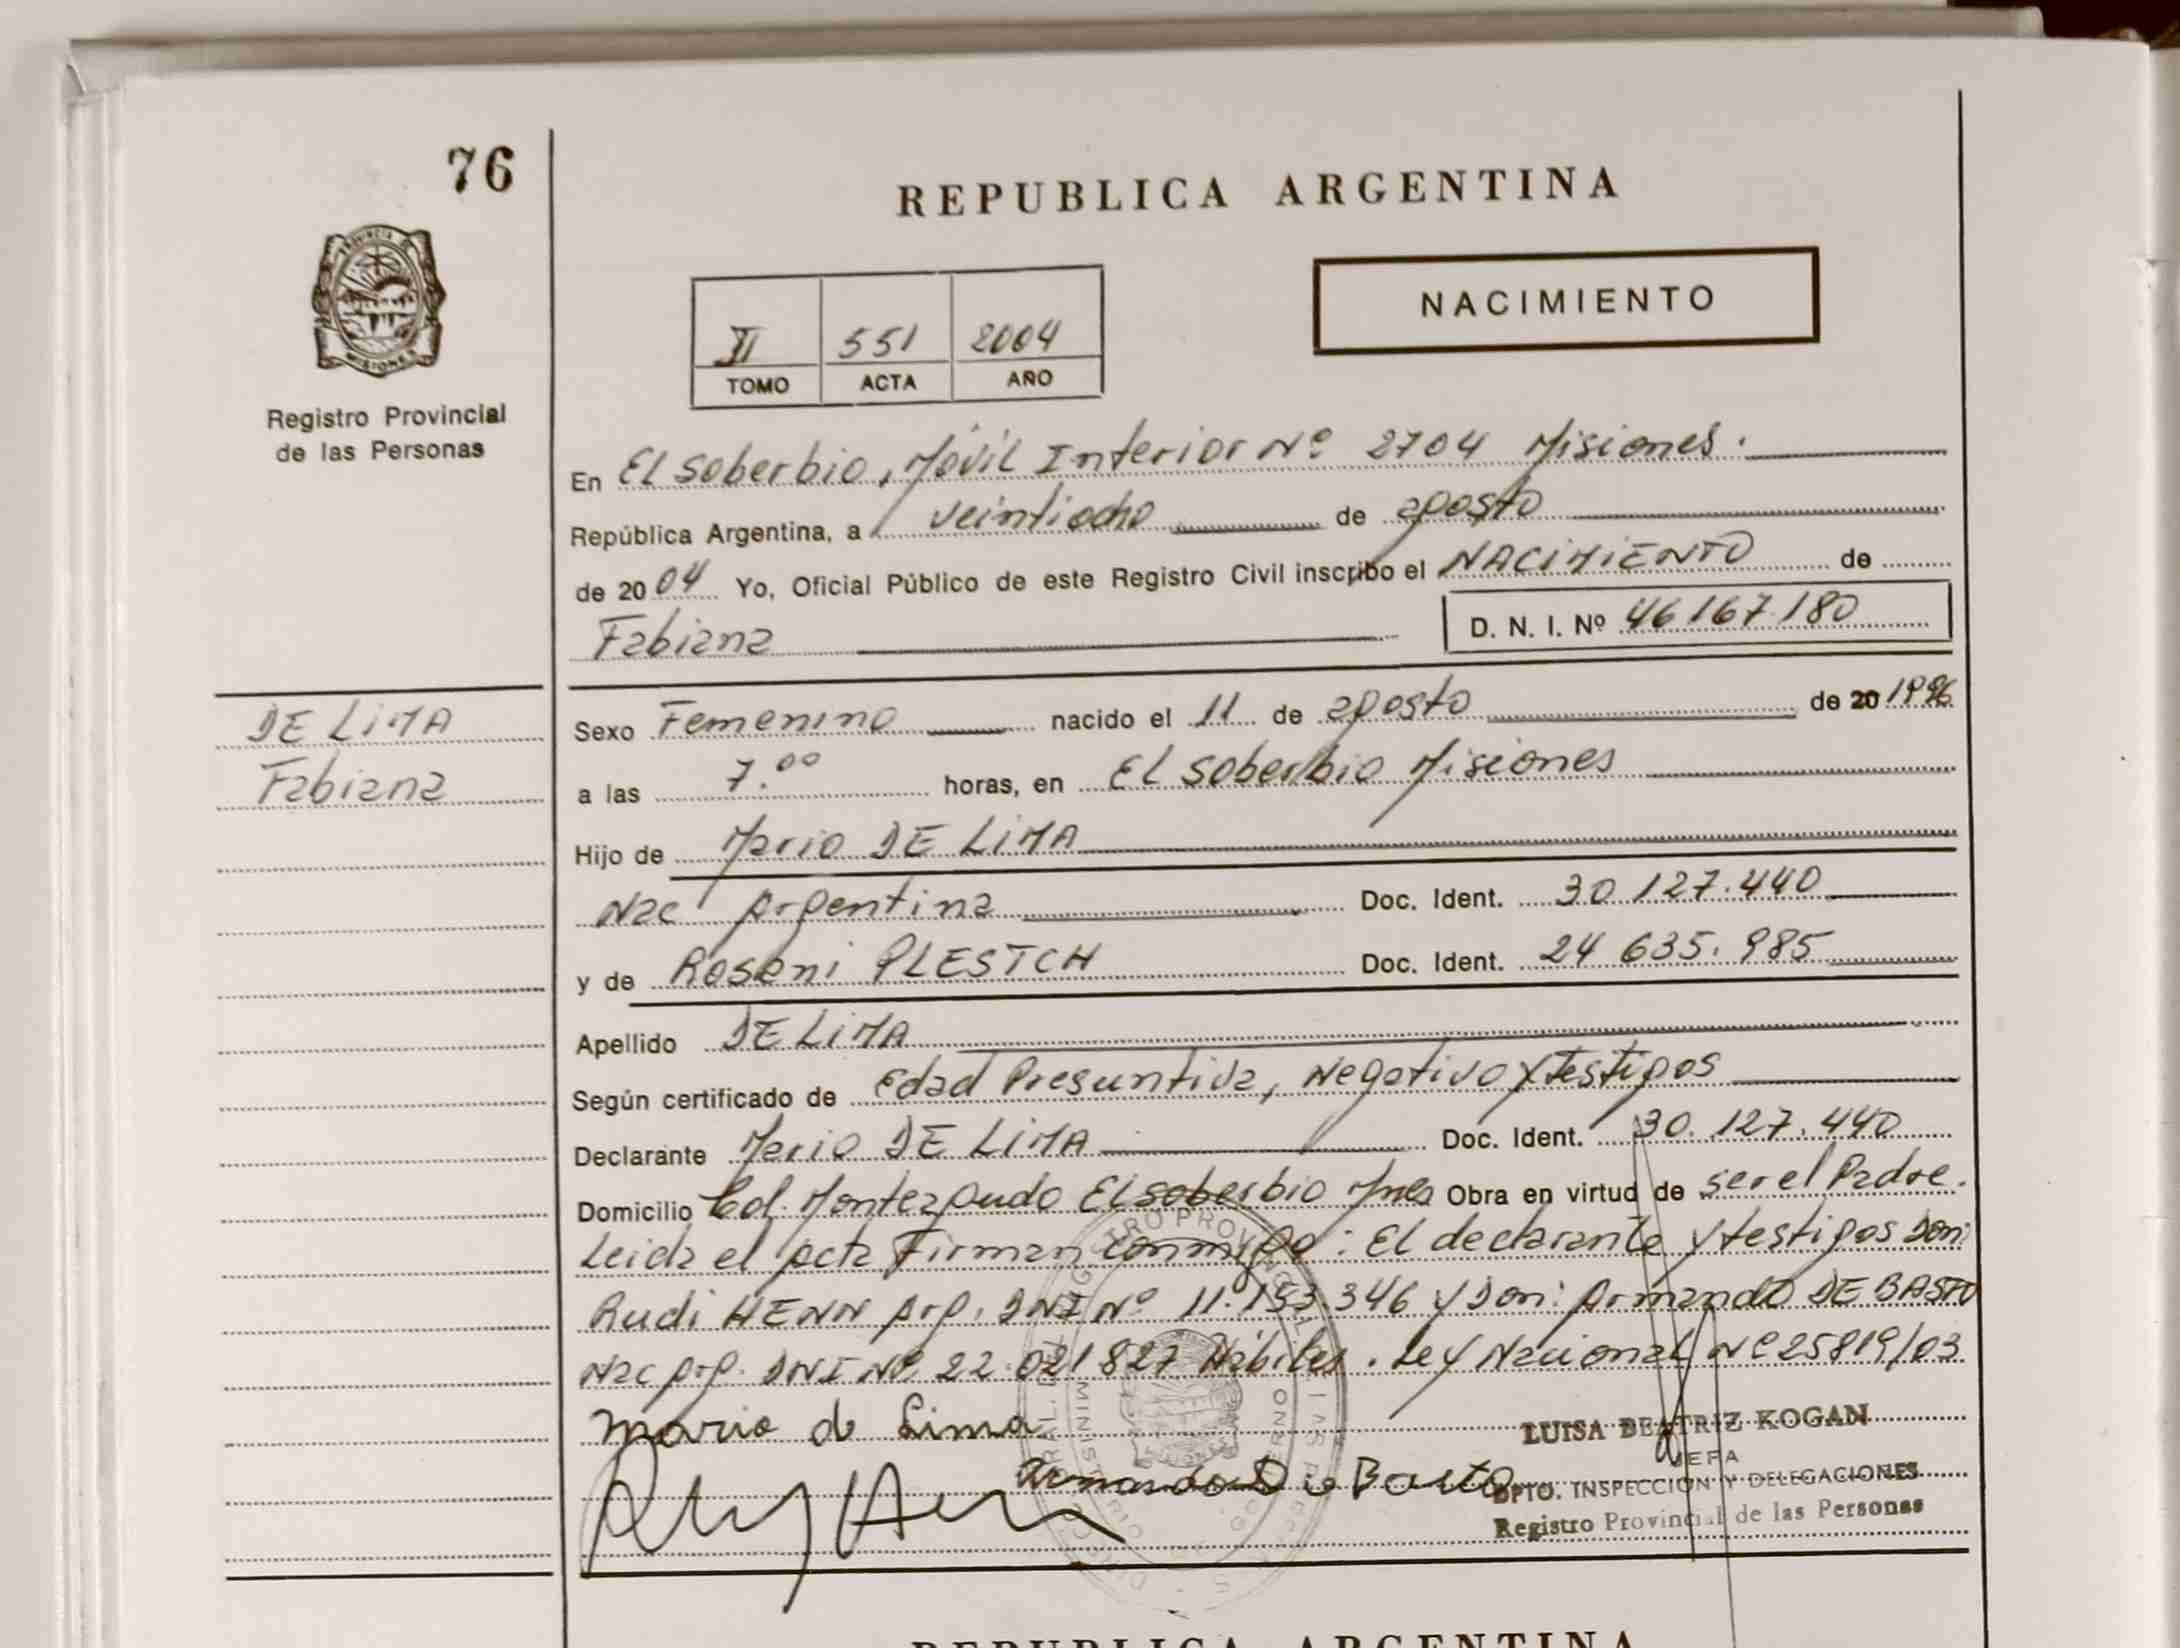 76
REPUBLICA ARGENTINA
NACIMIENTO
PROVINCIA DE
MISIONES
Registro Provincial
de las Personas
II 551 2004
TOMO ACTA AÑO
En El Soberbio, Móvil Interior Nº 2704 Misiones.
República Argentina, a veintiocho de agosto
de 2004 Yo, Oficial Público de este Registro Civil inscribo el NACIMIENTO de
Fabiana D. N. I. Nº 46167.180
DE LIMA
Fabiana
Sexo Femenino nacido el 11 de agosto de 20 1996
a las 7.00 horas, en El Soberbio Misiones
Hijo de Mario DE LIMA
Nac Argentina Doc. Ident. 30 127.440
y de Roseni PLESTCH Doc. Ident. 24 635.985
Apellido DE LIMA
Según certificado de Edad Presuntiva, Negativo y testigos
Declarante Mario DE LIMA Doc. Ident. 30.127.440
Domicilio Col. Monteagudo El Soberbio Mnes Obra en virtud de ser el Padre.
Leida el acta Firman conmigo: El declarante y testigos Don:
Rudi HENN Arg. DNI Nº 11.153.346 y Don: Armando DE BASTO
Nac Arg. DNI Nº 22.021 827 Hábiles. Ley Nacional Nº 25819/03
Mario de Lima
LUISA BEATRIZ KOGAN
JEFA
Armando De Basto
DPTO. INSPECCION Y DELEGACIONES
Registro Provincial de las Personas
REPUBLICA ARGENTINA